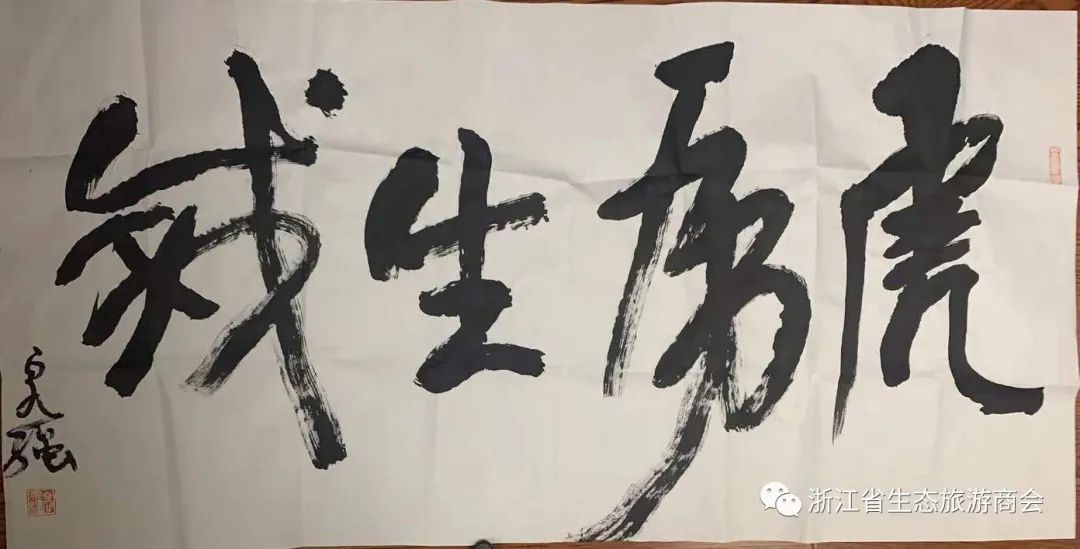 虎虎生威
泉强
浙江省生态旅游商会